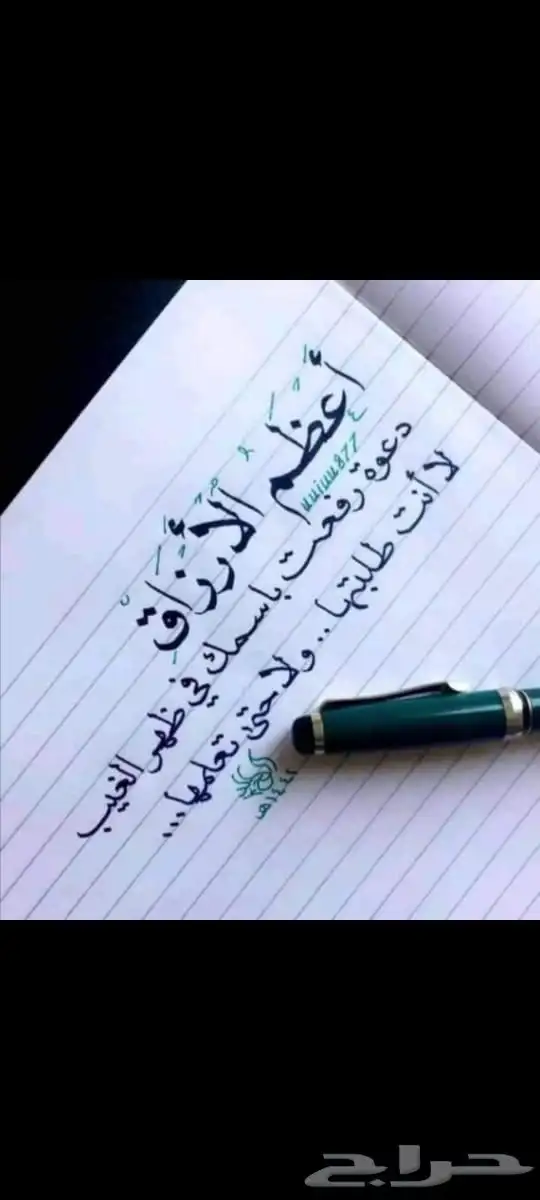 أعظم الأرزاق
uuiuu877
دعوة رفعت باسمك في ظهر الغيب
لا أنت طلبتها .. ولا حتى تعلمها ...
١٤٤٢هـ
حراج